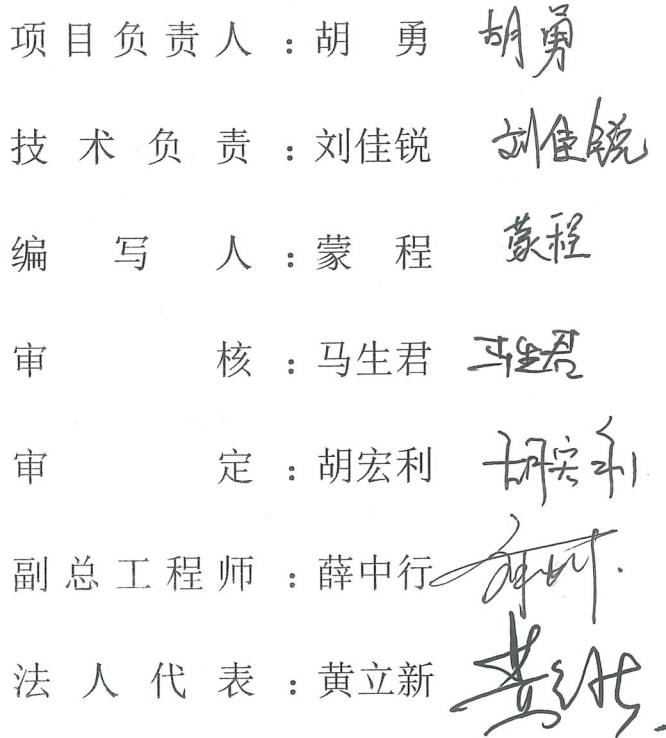 项目负责人：胡 勇 胡勇
技术负责：刘佳锐 刘佳锐
编写人：蒙 程 蒙程
审核：马生君 马生君
审定：胡宏利 胡宏利
副总工程师：薛中行
法人代表：黄立新